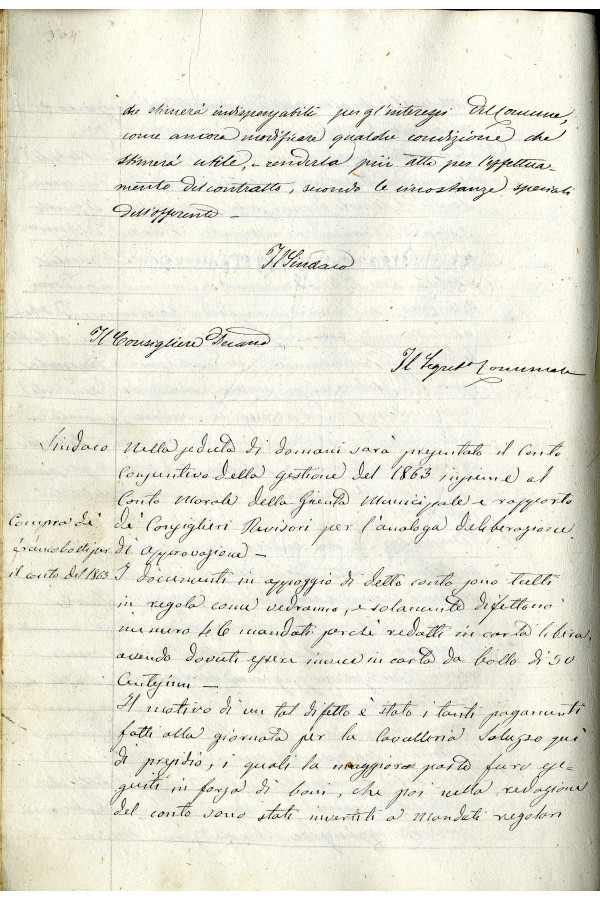 304
che stimerà indispensabili per gl'interessi del Comune,
come ancora modificare qualche condizione che
stimerà utile, e renderla più atta per l'effettua-
mento del contratto, secondo le circostanze speciali
dell'offerente —
Il Sindaco
Il Consigliere Decano
Il Segret.o Comunale
Sindaco
Nella seduta di domani sarà presentato il Conto
Consuntivo della gestione del 1863 insieme al
Conto Morale della Giunta Municipale e rapporto
de' Consiglieri Revisori per l'analoga deliberazione
di approvazione —
Compra de'
francobolli per
il conto del 1863
I documenti in appoggio di detto conto sono tutti
in regola come vedranno, e solamente difettono
numero 46 mandati perchè redatti in carta libera,
avendo dovuti essere invece in carta da bollo di 50
Centesimi —
Il motivo di un tal difetto è stato i tanti pagamenti
fatti alla giornata per la cavalleria Saluzzo qui
di presidio, i quali la maggiore parte furo ese-
guiti in forza di boni, che poi nella redazione
del conto sono stati invertiti a mandati regolari